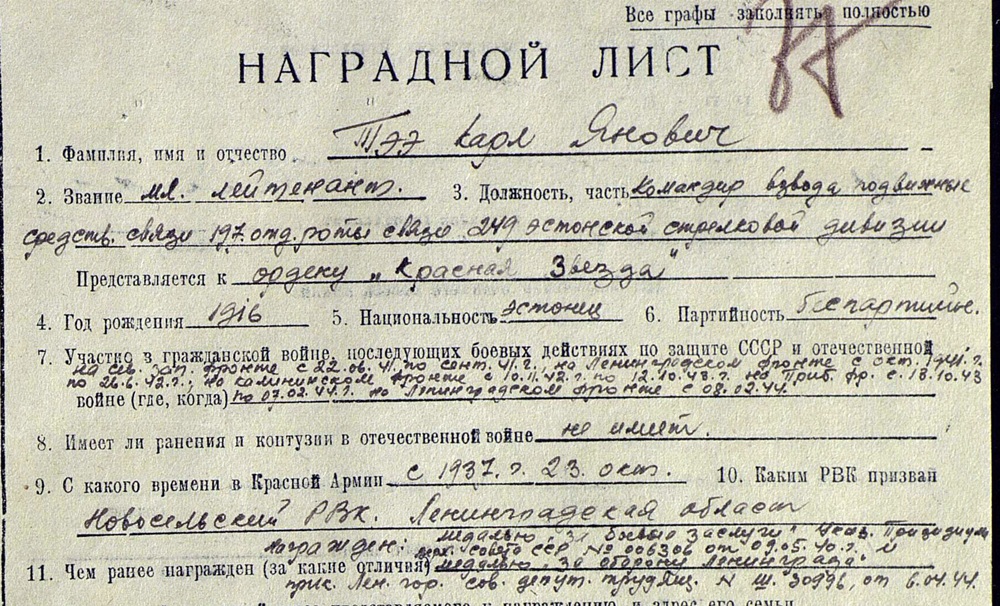 Все графы заполнять полностью
НАГРАДНОЙ ЛИСТ
1. Фамилия, имя и отчество Тээ Карл Янович
2. Звание мл. лейтенант. 3. Должность, часть Командир взвода подвижных
средств. связи 197. отд. роты связи 249 эстонской стрелковой дивизии
Представляется к ордену „Красная Звезда"
4. Год рождения 1916 5. Национальность эстонец 6. Партийность беспартийн.
7. Участие в гражданской войне, последующих боевых действиях по защите СССР и отечественной
на сев. зап. фронте с 22.06.41. по сент. 41 г., на Ленинградском фронте с окт. 1941. г.
по 26.6.42. г., на калининском фронте с 10.11.42. г. по 12.10.43. г. на Приб. фр. с 13.10.43
войне (где, когда) по 07.02.44. г. на Ленинградском фронте с 08.02.44.
8. Имеет ли ранения и контузии в отечественной войне не имеет.
9. С какого времени в Красной Армии с 1937. г. 23. окт. 10. Каким РВК призван
Новосельский РВК. Ленинградская област
Награжден: медалью „За боевые заслуги" Указ. Президиума
Верх. Совета ССР № 006306 от 09.05.40. г. и
11. Чем ранее награжден (за какие отличия) медалью „За оборону Ленинграда"
прик. Лен. гор. сов. депут. трудящ. N Ш. 30996, от 6.04.44.
представляемого к награждению и адрес его семьи